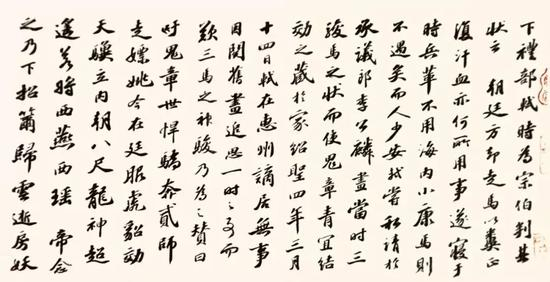 下禮部軾時為宗伯判其
狀云 朝廷方却走馬以糞正
復汗血亦何所用事遂寢于
時兵革不用海内小康馬則
不遇矣而人少安軾嘗私請於
承議郎李公麟畫當時三
駿馬之狀而使鬼章青宜結
効之藏於家紹聖四年三月
十四日軾在惠州謫居無事
因閱舊畫追思一時之事而
歎三馬之神駿乃為之贊曰
吁鬼章世悍驕奔貳師
走嫖姚今在廷服虎貂効
天驥立内朝八尺龍神超
遙若將西燕西瑤 帝念
之乃下招籥歸雲逝房妖